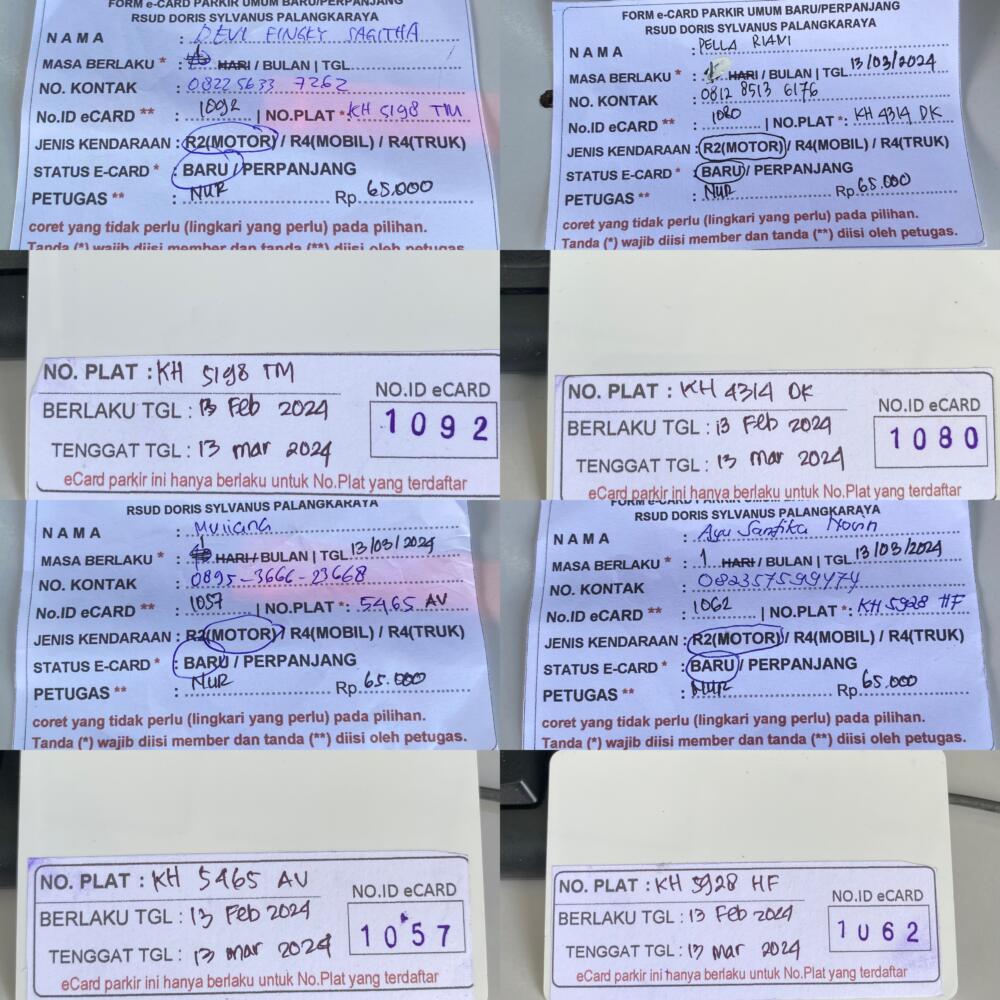 FORM e-CARD PARKIR UMUM BARU/PERPANJANG
RSUD DORIS SYLVANUS PALANGKARAYA
NAMA : DEVI FINGKY SAGITHA
MASA BERLAKU * : HARI / BULAN | TGL
NO. KONTAK : 0822 5633 7262
No.ID eCARD ** : 10092 | NO.PLAT *: KH 5198 TM
JENIS KENDARAAN : R2(MOTOR) / R4(MOBIL) / R4(TRUK)
STATUS E-CARD * : BARU / PERPANJANG
PETUGAS ** : NUR Rp. 65.000
coret yang tidak perlu (lingkari yang perlu) pada pilihan.
Tanda (*) wajib diisi member dan tanda (**) diisi oleh petugas.
FORM e-CARD PARKIR UMUM BARU/PERPANJANG
RSUD DORIS SYLVANUS PALANGKARAYA
NAMA : PELLA RIANI
MASA BERLAKU * : 1 HARI / BULAN | TGL 13/03/2024
NO. KONTAK : 0812 8513 6176
No.ID eCARD ** : 1080 | NO.PLAT *: KH 4314 DK
JENIS KENDARAAN : R2(MOTOR) / R4(MOBIL) / R4(TRUK)
STATUS E-CARD * : BARU / PERPANJANG
PETUGAS ** : NUR Rp. 65.000
coret yang tidak perlu (lingkari yang perlu) pada pilihan.
Tanda (*) wajib diisi member dan tanda (**) diisi oleh petugas.
NO. PLAT : KH 5198 TM
NO.ID eCARD
BERLAKU TGL : 13 Feb 2024
1092
TENGGAT TGL : 13 mar 2024
eCard parkir ini hanya berlaku untuk No.Plat yang terdaftar
NO. PLAT : KH 4314 DK
NO.ID eCARD
BERLAKU TGL : 13 Feb 2024
1080
TENGGAT TGL : 13 mar 2024
eCard parkir ini hanya berlaku untuk No.Plat yang terdaftar
RSUD DORIS SYLVANUS PALANGKARAYA
NAMA : Muliana
MASA BERLAKU * : 1 HARI / BULAN | TGL 13/03/2024
NO. KONTAK : 0895-3666-23668
No.ID eCARD ** : 1057 | NO.PLAT *: 5465 AV
JENIS KENDARAAN : R2(MOTOR) / R4(MOBIL) / R4(TRUK)
STATUS E-CARD * : BARU / PERPANJANG
PETUGAS ** : NUR Rp. 65.000
coret yang tidak perlu (lingkari yang perlu) pada pilihan.
Tanda (*) wajib diisi member dan tanda (**) diisi oleh petugas.
RSUD DORIS SYLVANUS PALANGKARAYA
NAMA : Ayu
MASA BERLAKU * : 1 HARI / BULAN | TGL 13/03/2024
NO. KONTAK : 082357599474
No.ID eCARD ** : 1062 | NO.PLAT *: KH 5928 HF
JENIS KENDARAAN : R2(MOTOR) / R4(MOBIL) / R4(TRUK)
STATUS E-CARD * : BARU / PERPANJANG
PETUGAS ** : NUR Rp. 65.000
coret yang tidak perlu (lingkari yang perlu) pada pilihan.
Tanda (*) wajib diisi member dan tanda (**) diisi oleh petugas.
NO. PLAT : KH 5465 AV
NO.ID eCARD
BERLAKU TGL : 13 Feb 2024
1057
TENGGAT TGL : 13 mar 2024
eCard parkir ini hanya berlaku untuk No.Plat yang terdaftar
NO. PLAT : KH 5928 HF
NO.ID eCARD
BERLAKU TGL : 13 Feb 2024
1062
TENGGAT TGL : 13 mar 2024
eCard parkir ini hanya berlaku untuk No.Plat yang terdaftar